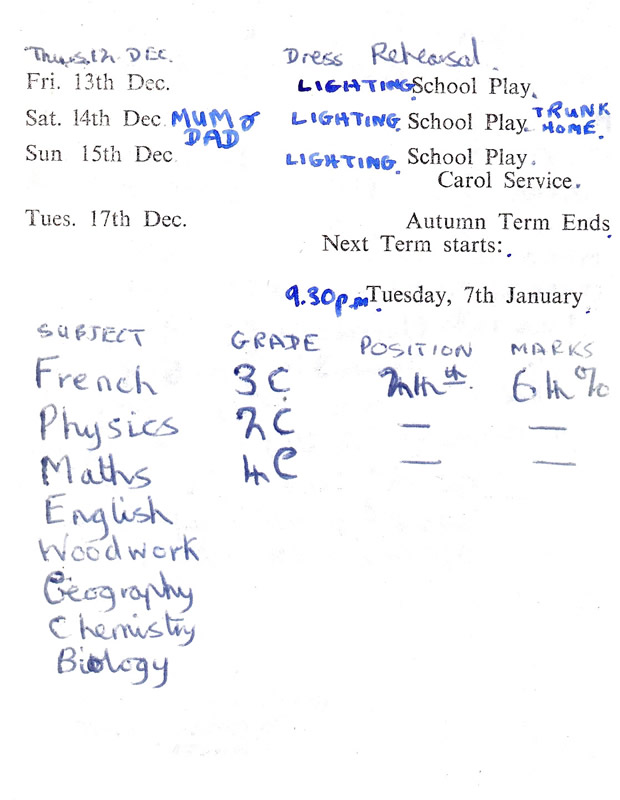 Thurs, 12 DEC. Dress Rehearsal.
Fri. 13th Dec. LIGHTING School Play.
Sat. 14th Dec MUM & DAD LIGHTING. School Play. TRUNK HOME.
Sun 15th Dec LIGHTING. School Play.
Carol Service.
Tues. 17th Dec. Autumn Term Ends
Next Term starts:
9.30p.m. Tuesday, 7th January
SUBJECT GRADE POSITION MARKS
French 3C 24th 64%
Physics 2C — —
Maths 4C — —
English
Woodwork
Geography
Chemistry
Biology